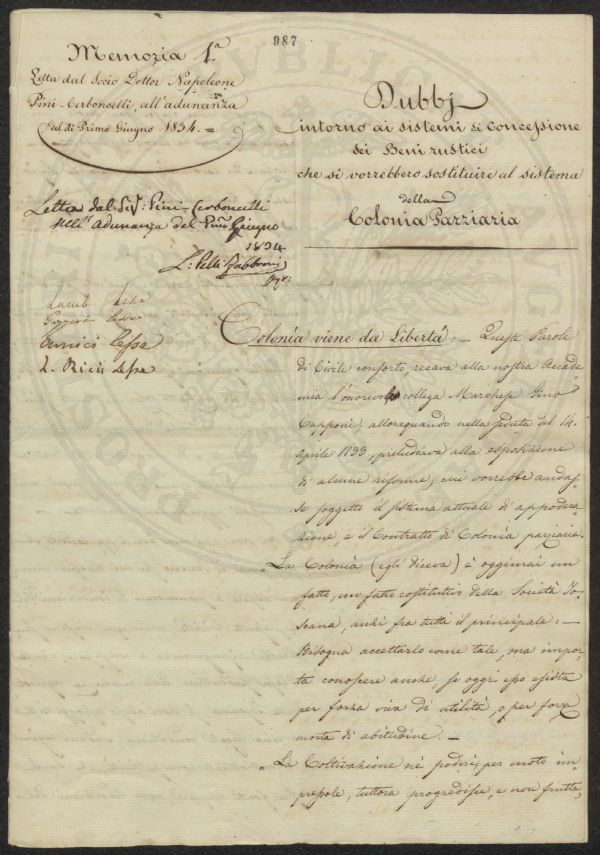 987
Memoria 1.a
Letta dal Socio Dottor Napoleone
Pini-Cerboncelli, all'adunanza
del dì Primo Giugno 1834. =
Letta dal Sig.r Pini-Cerboncelli
nell'adunanza del Pmo Giugno
1834
L: Pelli Fabbroni
Lamb. lesse
lesse
Amici lesse
L. Ricci lesse
Dubbj
intorno ai sistemi di concessione
dei Beni rustici
che si vorrebbero sostituire al sistema
della
Colonia Parziaria
Colonia viene da Libertà: — Queste Parole
di Civile conforto, recava alla nostra Accade-
mia l'onorevole collega Marchese Gino
Capponi, alloraquando nella seduta del 14.
Aprile 1833, preludeva alla esposizione
di alcune riforme, cui vorrebbe andas-
se soggetto il sistema attuale di appodera-
zione, e il Contratto di Colonia parziaria.
„La Colonia (egli diceva) è oggimai un
fatto, un fatto costitutivo della Società To-
scana, anzi fra tutti il principale: —
Bisogna accettarlo come tale, ma impor-
ta conoscere anche, se oggi esso esista
per forza viva di utilità, o per forza
morta di abitudine. —
„La Coltivazione ne' poderi, per moto im-
, tuttora progredisce, e non frutta,